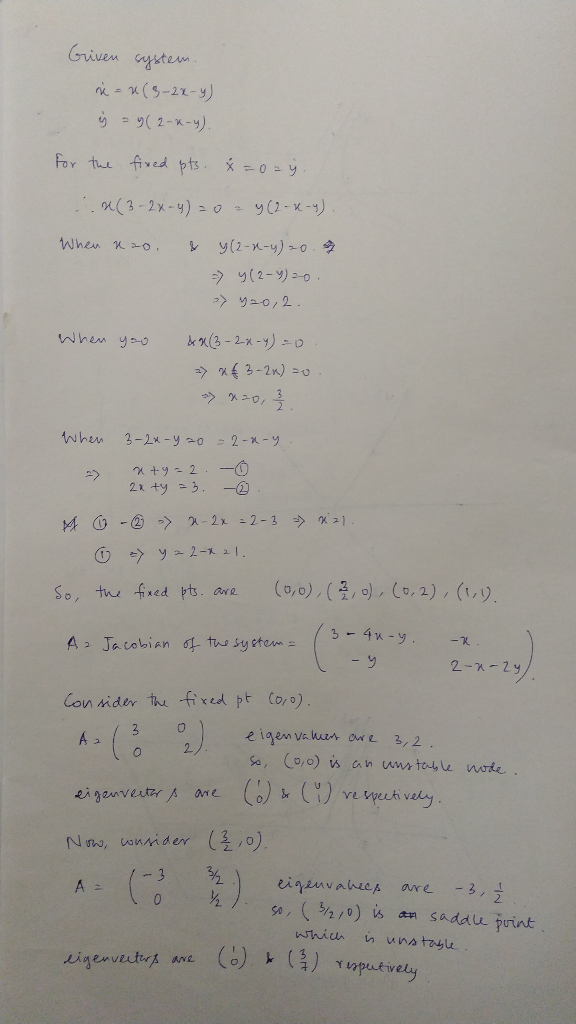 Given system.
ẋ = x(3-2x-y)
ẏ = y(2-x-y).
For the fixed pts. ẋ = 0 = ẏ.
∴ x(3-2x-y) = 0 = y(2-x-y).
When x=0, & y(2-x-y)=0.
⇒ y(2-y)=0.
⇒ y=0, 2.
When y=0 & x(3-2x-y) = 0
⇒ x(3-2x) = 0.
⇒ x=0, 3/2.
When 3-2x-y=0 = 2-x-y.
⇒ x+y = 2. —①
2x+y = 3. —②.
① - ② ⇒ x-2x = 2-3 ⇒ x=1.
① ⇒ y = 2-x = 1.
So, the fixed pts. are (0,0), (3/2, 0), (0,2), (1,1).
A = Jacobian of the system = ( 3-4x-y. -x.
-y 2-x-2y ).
Consider the fixed pt (0,0).
A = ( 3 0
0 2 ). eigenvalues are 3, 2.
So, (0,0) is an unstable node.
eigenvectors are (1 0) & (0 1) respectively.
Now, consider (3/2, 0).
A = ( -3 3/2
0 1/2 ). eigenvalues are -3, 1/2
so, (3/2, 0) is saddle point.
which is unstable.
eigenvectors are (1 0) & (3 7) respectively